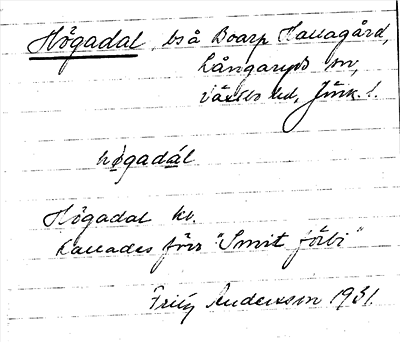 Högadal, bs å Boarp Hallagård,
Långaryds sn,
Västbo hd, Jönk. l.
högadál
Högadal kv.
kallades förr "Smit förbi"
Fritz Andersson 1931.